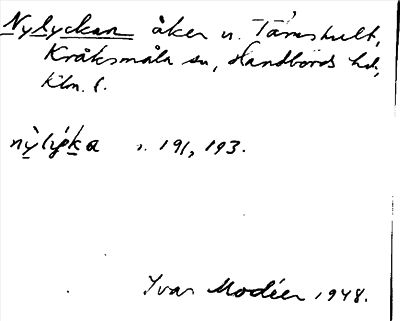 Nylyckan åker u. Tämshult,
Kråksmåla sn, Handbörds hd,
Klm. l.
nỳlýka s. 191, 193.
Ivar Modéer 1948.